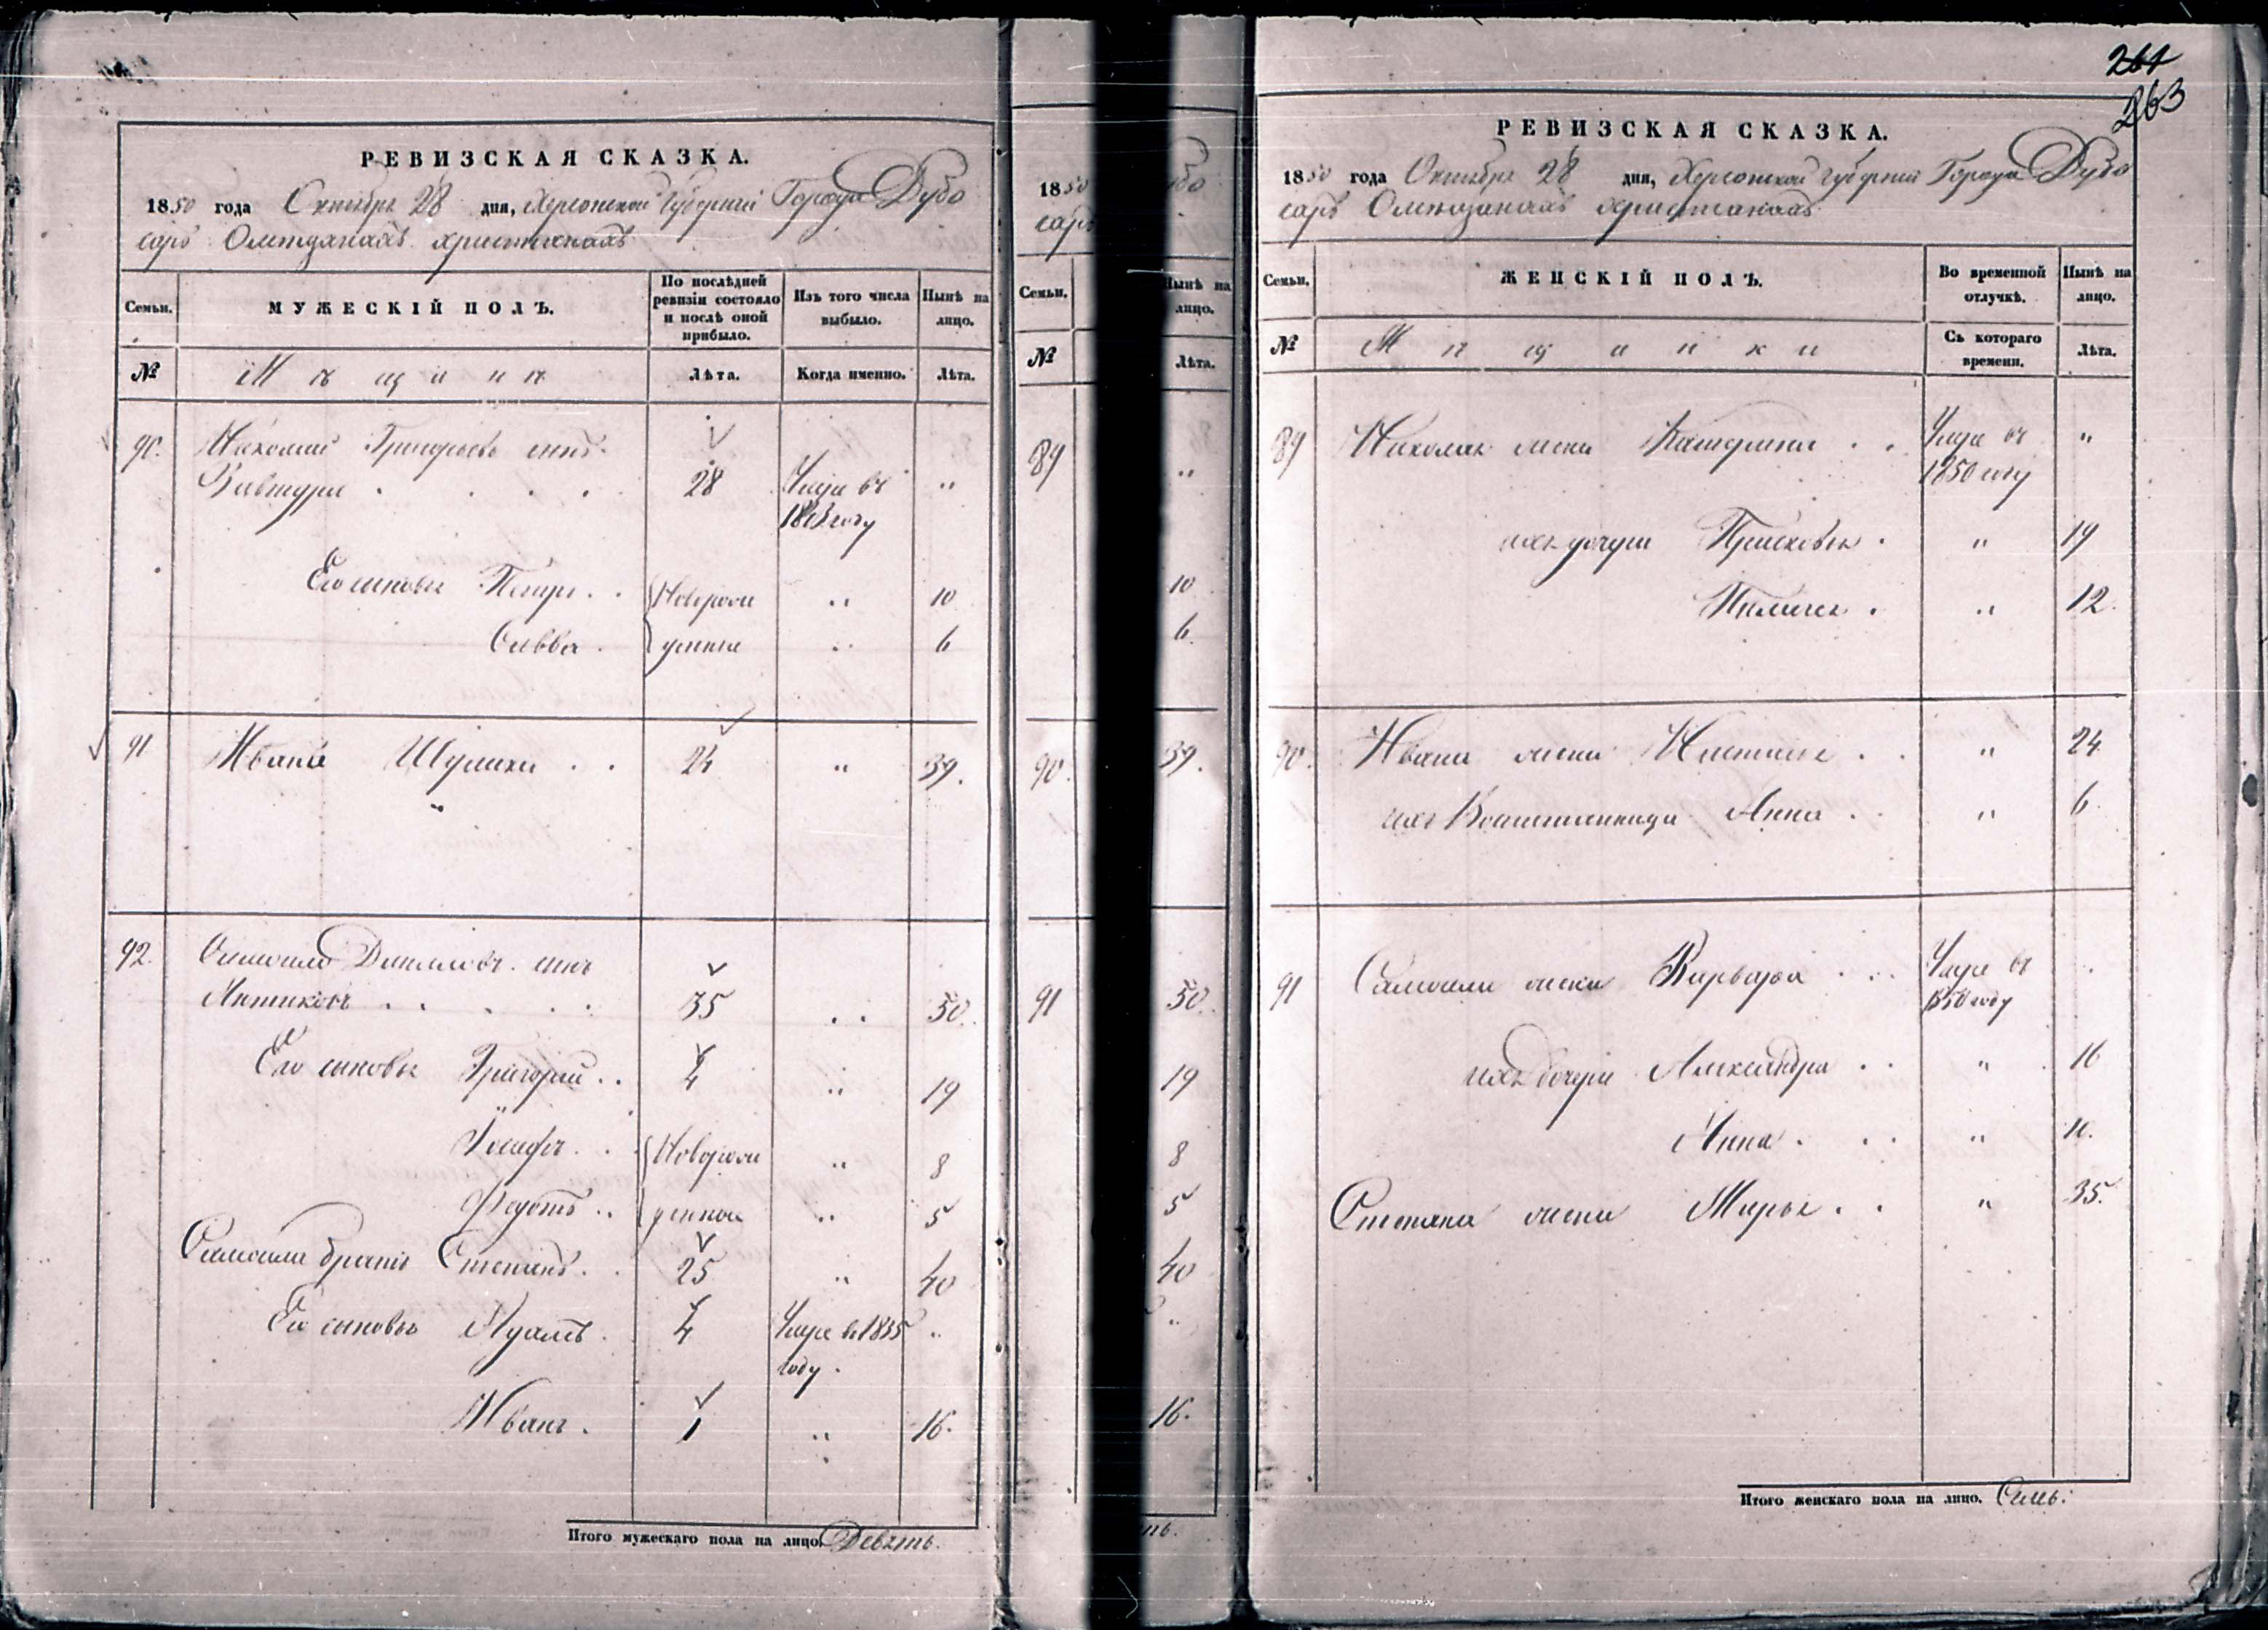 РЕВИЗСКАЯ СКАЗКА.
1850 года Октября 28 дня, Херсонской Губернии Города Дубо
саръ О мещанахъ христианахъ
Семьи.
МУЖЕСКІЙ ПОЛЪ.
По послѣдней ревизіи состояло и послѣ оной прибыло.
Изъ того числа выбыло.
Нынѣ на лицо.
№
Мѣщане
Лѣта.
Когда именно.
Лѣта.
90. Николай Григорьевъ сынъ
28 Умре въ "
1843 году
Его сыновья Петръ . . Новорож " 10
Савва . денные " 6
91 Ивана Шулики . . 24 " 39.
92. Самоила Данилов. сынъ
Антиковъ . . 35 " 50.
Его сыновья Григорий . . 4 " 19
Іосифъ . . Новорож " 8
Федотъ . . денные " 5
Самоила братъ Степанъ . . 25 " 40
Его сыновья Адамъ . 4 Умре в 1835 "
году .
Иванъ . 1 " 16.
Итого мужескаго пола на лицо. Девять.
1850
саръ
Семьи.
№
89
90.
91
дубо
Нынѣ на лицо.
Лѣта.
"
10
6.
39.
50.
19
8
5
40
"
16.
ть.
261
263
РЕВИЗСКАЯ СКАЗКА.
1850 года Октября 28 дня, Херсонской губернии Города Дубо
саръ О мещанахъ христианахъ
Семьи.
ЖЕНСКІЙ ПОЛЪ.
Во временной отлучкѣ.
Нынѣ на лицо.
№
Мѣщанки
Съ котораго времени.
Лѣта.
89 Николая жена Катерина . . Умре въ "
1850 году
ихъ дочери Присковья . " 19
Пелагея . " 12.
90. Ивана жена Настасья . . " 24
ихъ Воспитанница Анна . . " 6.
91 Самоила жена Варвара . . . Умре въ .
1850 году
ихъ дочери Александра . . " 16
Анна . . . " 11.
Степана жена Марья . . " 35.
Итого женскаго пола на лицо. Семь.